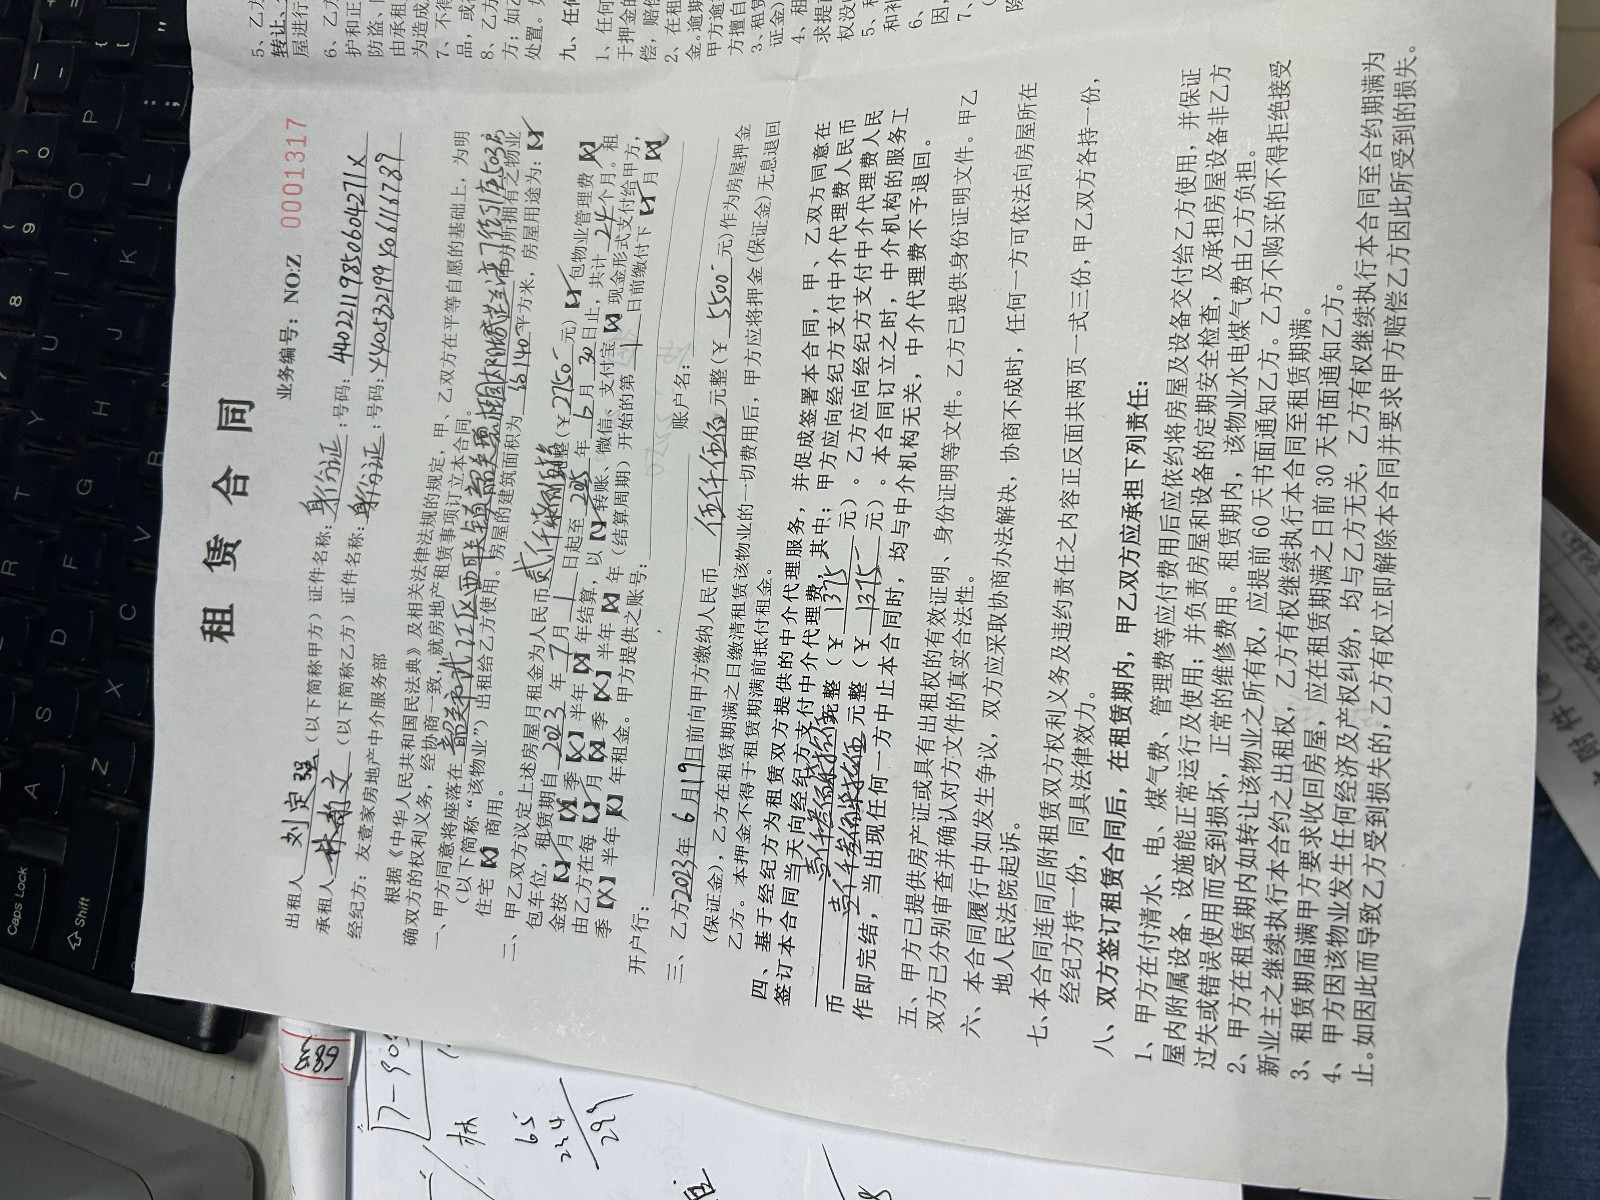 租 赁 合 同
业务编号：NO:Z 0001317
出租人 刘定强 （以下简称甲方）证件名称：身份证；号码：44022119850604271X
承租人 （以下简称乙方）证件名称：身份证；号码：
经纪方：友壹家房地产中介服务部
根据《中华人民共和国民法典》及相关法律法规的规定，甲、乙双方在平等自愿的基础上，为明
确双方的权利义务，经协商一致，就房地产租赁事项订立本合同。
一、甲方同意将座落在 韶关市武江区西联镇 所拥有之物业
（以下简称“该物业”）出租给乙方使用。房屋的建筑面积为 平方米，房屋用途为：【✓】
住宅【X】商用。
二、甲乙双方议定上述房屋月租金为人民币 整（¥ 2750 元）【✓】包物业管理费【X】
包车位，租赁期自 2023 年 7 月 1 日起至 2025 年 6 月 30 日止，共计 24 个月。租
金按【✓】月【X】季【X】半年【X】年结算，以【✓】转账、微信、支付宝【X】现金形式支付给甲方，
由乙方在每【✓】月【X】季【X】半年【X】年（结算周期）开始的第 1 日前缴付下【✓】月【X】
季【X】半年【X】年租金。甲方提供之账号：
开户行： 账户名：
三、乙方2023年 6 月19日前向甲方缴纳人民币 伍仟伍佰 元整（¥ 5500 元）作为房屋押金
（保证金），乙方在租赁期满之日缴清租赁该物业的一切费用后，甲方应将押金（保证金）无息退回
乙方。本押金不得于租赁期满前抵付租金。
四、基于经纪方为租赁双方提供的中介代理服务，并促成签署本合同，甲、乙双方同意在
签订本合同当天向经纪方支付中介代理费，其中：甲方应向经纪方支付中介代理费人民币
壹仟叁佰柒拾伍 元整（¥ 1375 元）。乙方应向经纪方支付中介代理费人民
币 壹仟叁佰柒拾伍 元整（¥ 1375 元）。本合同订立之时，中介机构的服务工
作即完结，当出现任何一方中止本合同时，均与中介机构无关，中介代理费不予退回。
五、甲方已提供房产证或具有出租权的有效证明、身份证明等文件。乙方已提供身份证明文件。甲乙
双方已分别审查并确认对方文件的真实合法性。
六、本合同履行中如发生争议，双方应采取协商办法解决，协商不成时，任何一方可依法向房屋所在
地人民法院起诉。
七、本合同连同后附租赁双方权利义务及违约责任之内容正反面共两页一式三份，甲乙双方各持一份，
经纪方持一份，同具法律效力。
八、双方签订租赁合同后，在租赁期内，甲乙双方应承担下列责任：
1、甲方在付清水、电、煤气费、管理费等应付费用后应依约将房屋及设备交付给乙方使用，并保证
屋内附属设备、设施能正常运行及使用；并负责房屋和设备的定期安全检查，及承担房屋设备非乙方
过失或错误使用而受到损坏，正常的维修费用。租赁期内，该物业水电煤气费由乙方负担。
2、甲方在租赁期内如转让该物业之所有权，应提前 60 天书面通知乙方。乙方不购买的不得拒绝接受
新业主之继续执行本合约之出租权，乙方有权继续执行本合同至租赁期满。
3、租赁期届满甲方要求收回房屋，应在租赁期满之日前 30 天书面通知乙方。
4、甲方因该物业发生任何经济及产权纠纷，均与乙方无关，乙方有权继续执行本合同至合约期满为
止。如因此而导致乙方受到损失的，乙方有权立即解除本合同并要求甲方赔偿乙方因此所受到的损失。